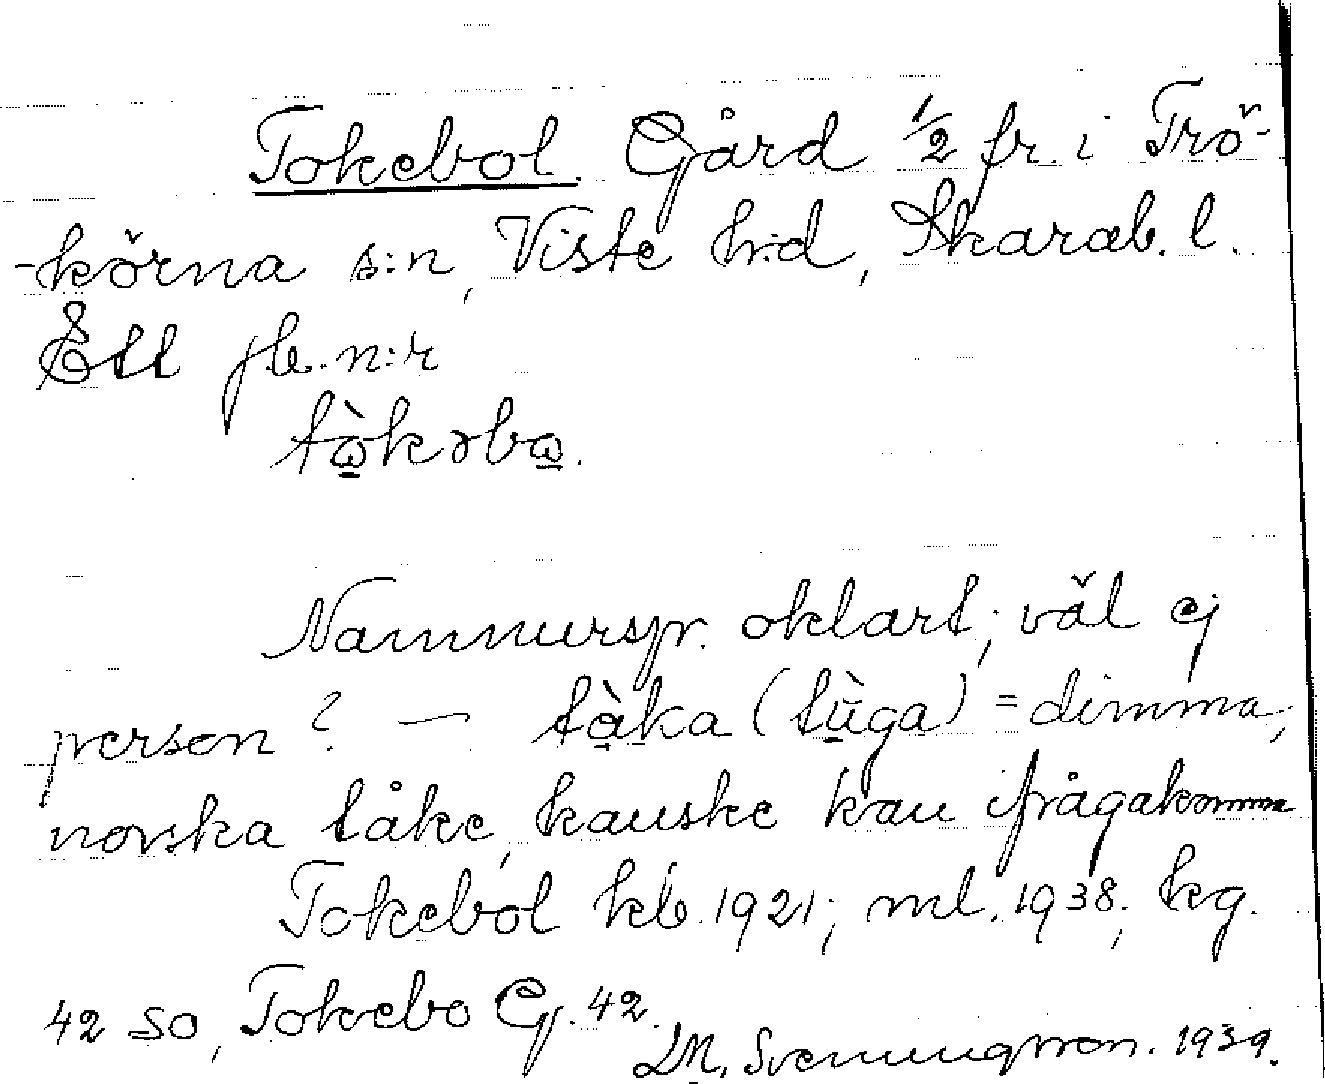 Tokebol. Gård 1/2 fr. i Trö-
-körna s:n, Viste h:d, Skarab. l.
Ett jb. n:r
tὼkəbω.
Namnurspr. oklart; väl ej
person? — tàka (tùga) = dimma,
norska tåke, kanske kan ifrågakomma
Tokebol kb. 1921; ml. 1938; kg.
42 so, Tokebo G. 42.
LM. Svenungsson. 1939.